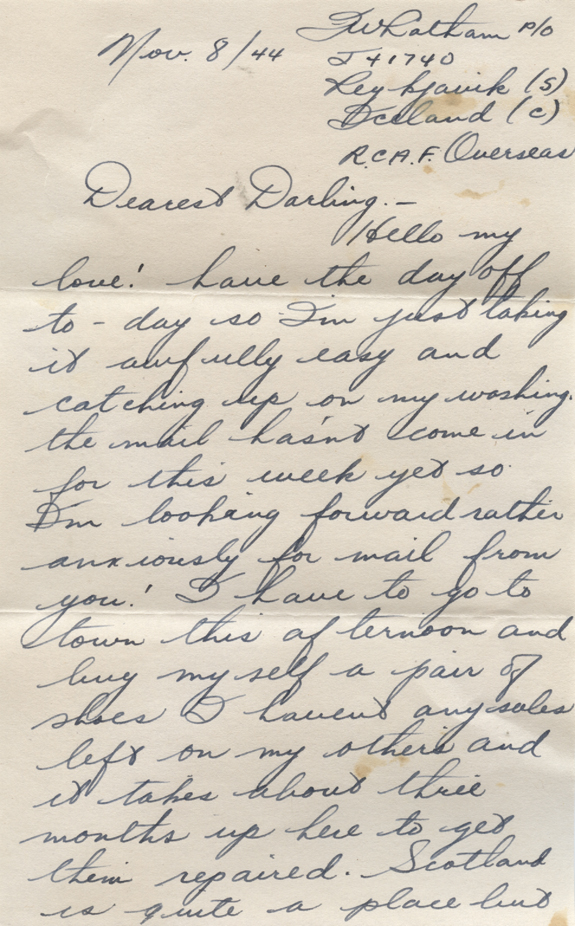 Nov. 8/44
Whatham P/O
J41740
Reykjavik (S)
Iceland (C)
R.C.A.F. Overseas
Dearest Darling.-
Hello my
love! have the day off
to-day so I'm just taking
it awfully easy and
catching up on my washing.
the mail hasn't come in
for this week yet so
I'm looking forward rather
anxiously for mail from
you! I have to go to
town this afternoon and
buy myself a pair of
shoes I havent any soles
left on my others and
it takes about three
months up here to get
them repaired. Scotland
is quite a place but